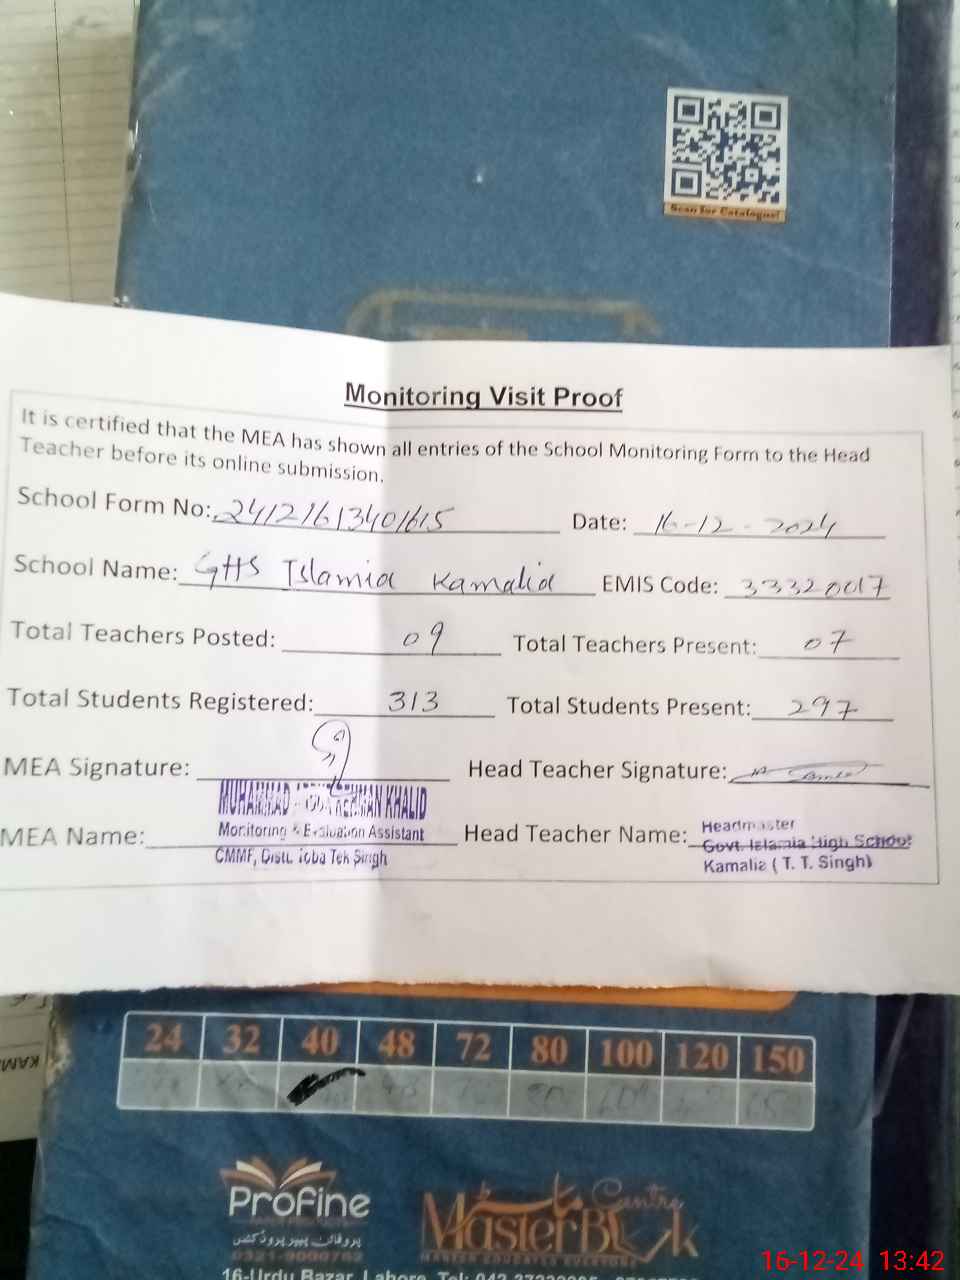 Scan for Catalogue!
Monitoring Visit Proof
It is certified that the MEA has shown all entries of the School Monitoring Form to the Head
Teacher before its online submission.
School Form No: 24121613401615 Date: 16-12-2024
School Name: GHS Islamia Kamalia EMIS Code: 33320017
Total Teachers Posted: 09 Total Teachers Present: 07
Total Students Registered: 313 Total Students Present: 297
MEA Signature: Head Teacher Signature:
MUHAMMAD REHMAN KHALID
MEA Name: Monitoring & Evaluation Assistant Head Teacher Name: Headmaster
CMMF, Distt. Toba Tek Singh Govt. Islamia High School
Kamalia ( T. T. Singh)
24 32 40 48 72 80 100 120 150
Profine
پروفائن پیپر پروڈکٹس
Centre
MasterBook
16-Urdu Bazar, Lahore. Tel:
16-12-24 13:42